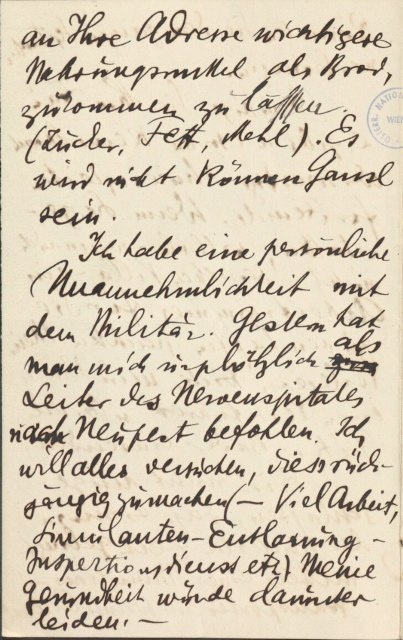 an Ihre Adresse wichtigere
Nahrungsmittel als Brod,
zukommen zu lassen.
(Zucker, Fett, Mehl). Es
wird nicht können
sein.
Ich habe eine persönliche
Unannehmlichkeit mit
dem Militär. Gestern hat
man mich urplötzlich als
Leiter des Nervenspitales
nach Neupest befohlen. Ich
will alles versuchen, dies rück-
gängig zu machen (– Viel Arbeit,
Simulanten-Entlarvung –
Inspectionsdienst etz) Meine
Gesundheit würde darunter
leiden. –
NATION
WIEN